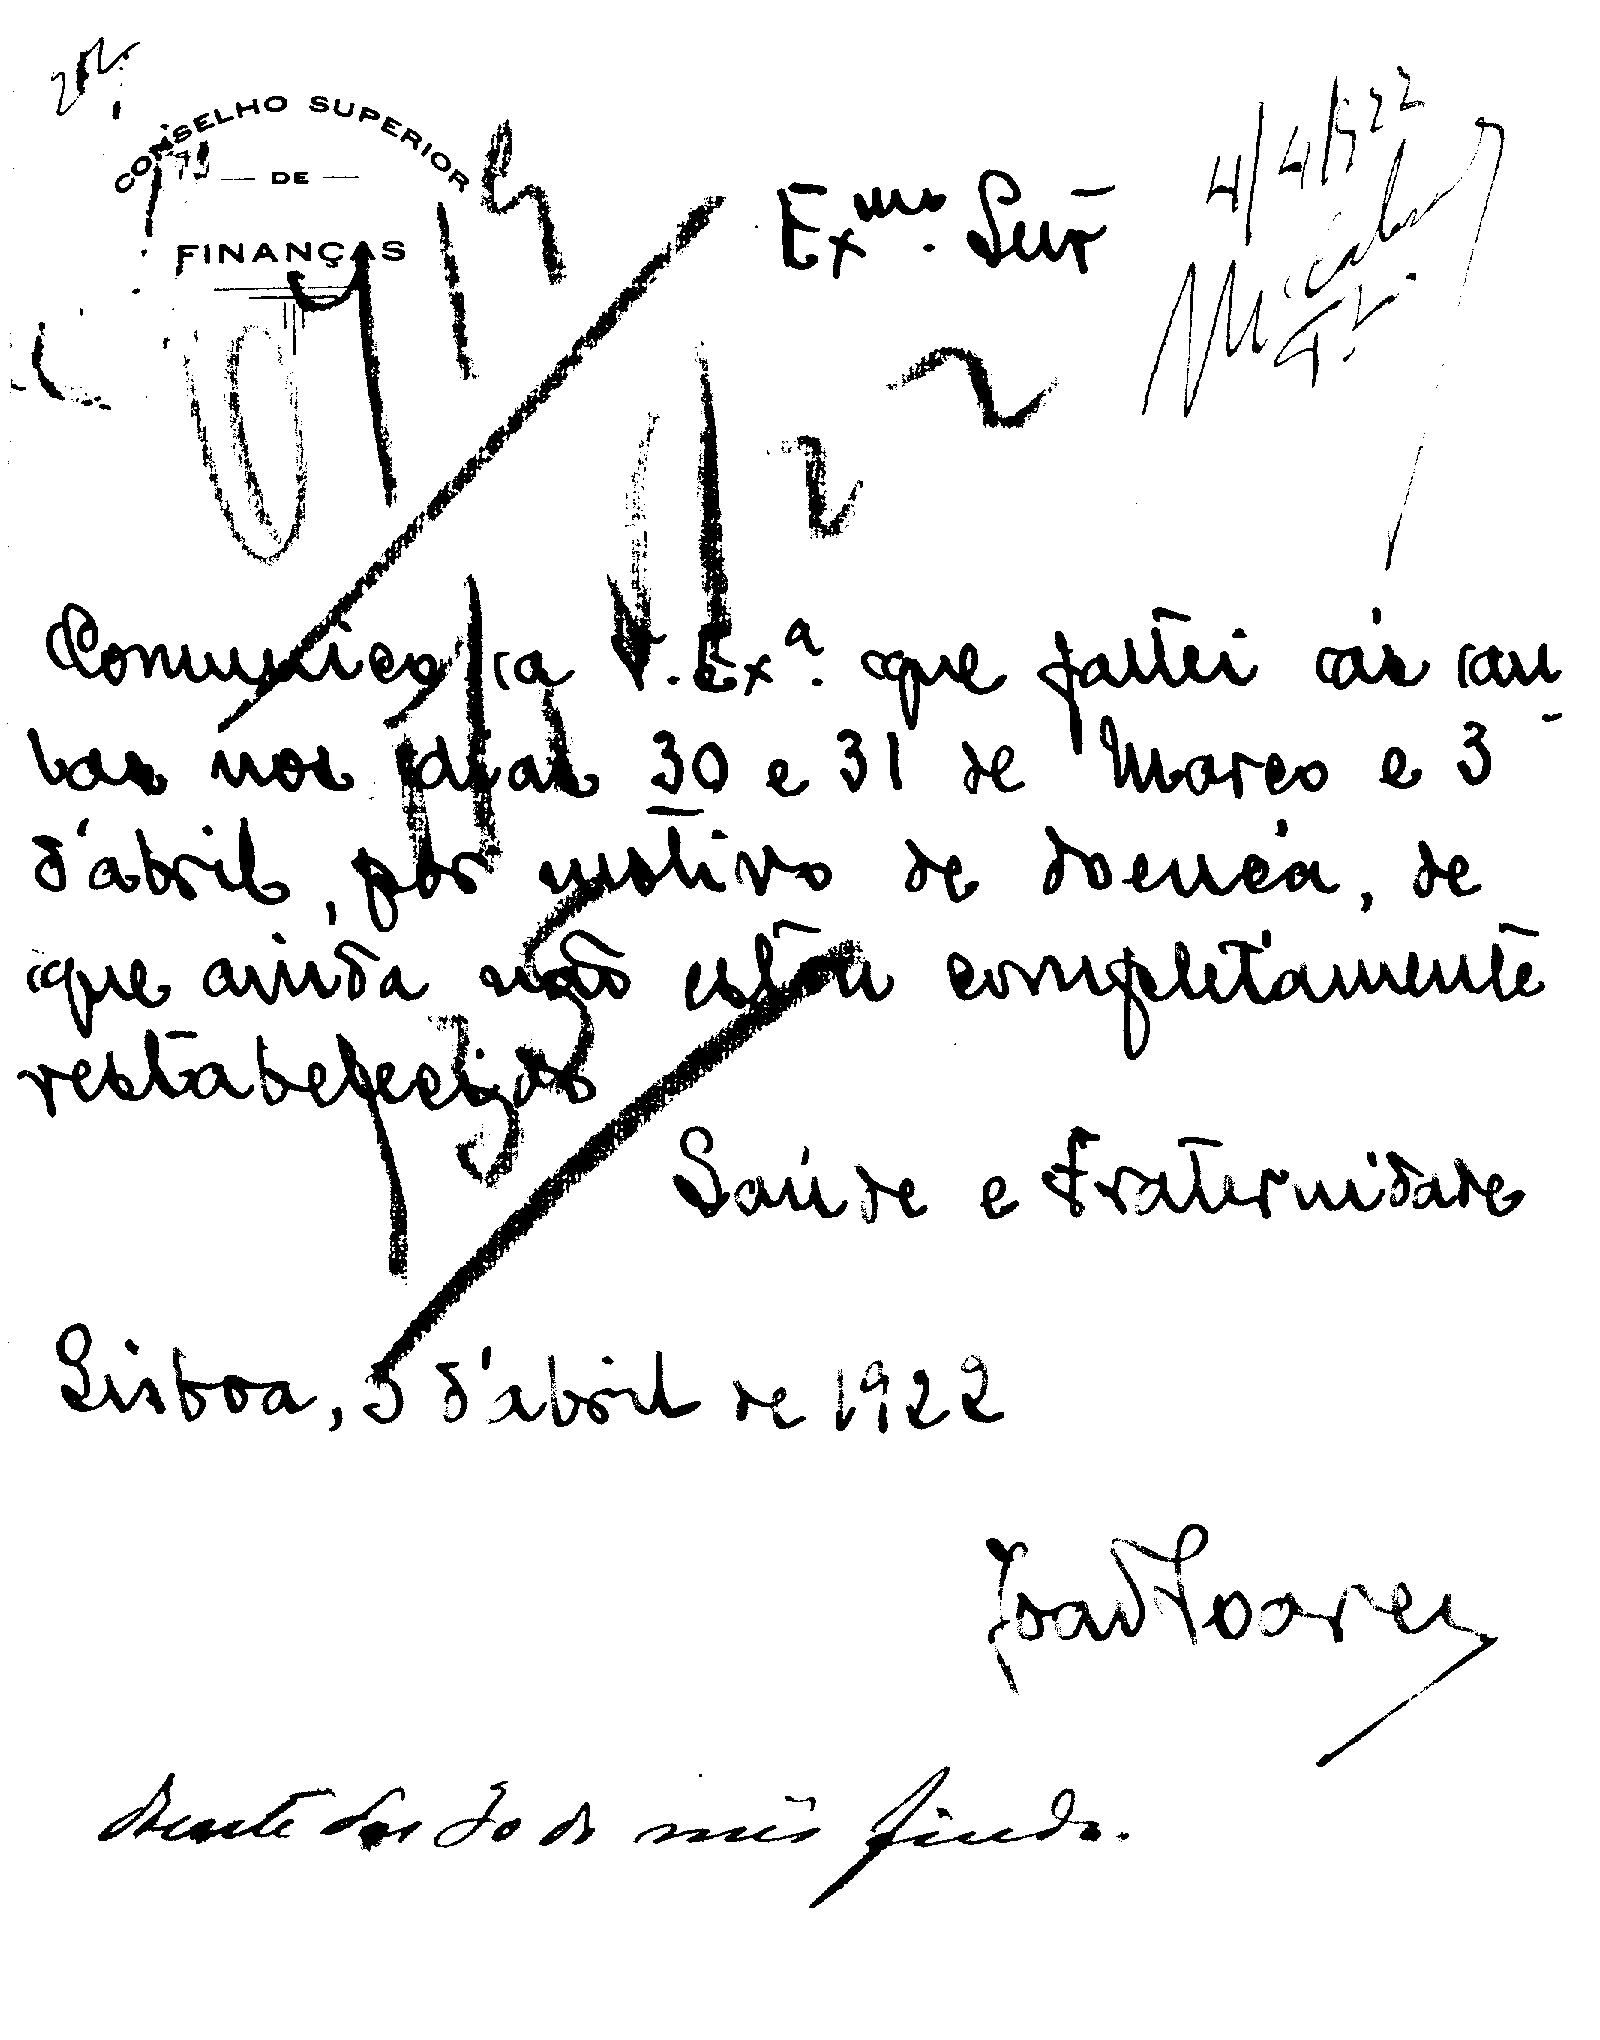 CONSELHO SUPERIOR
DE
FINANÇAS
4/4/922
Exmo. Snr
Comunico a V. Exª. que faltei ás au-
las nos dias 30 e 31 de Março e 3
d'abril, por motivo de doença, de
que ainda não estou completamente
restabelecido
Saúde e Fraternidade
Lisboa, 3 d'abril de 1922
João Soares
Doente 30 do mês findo.